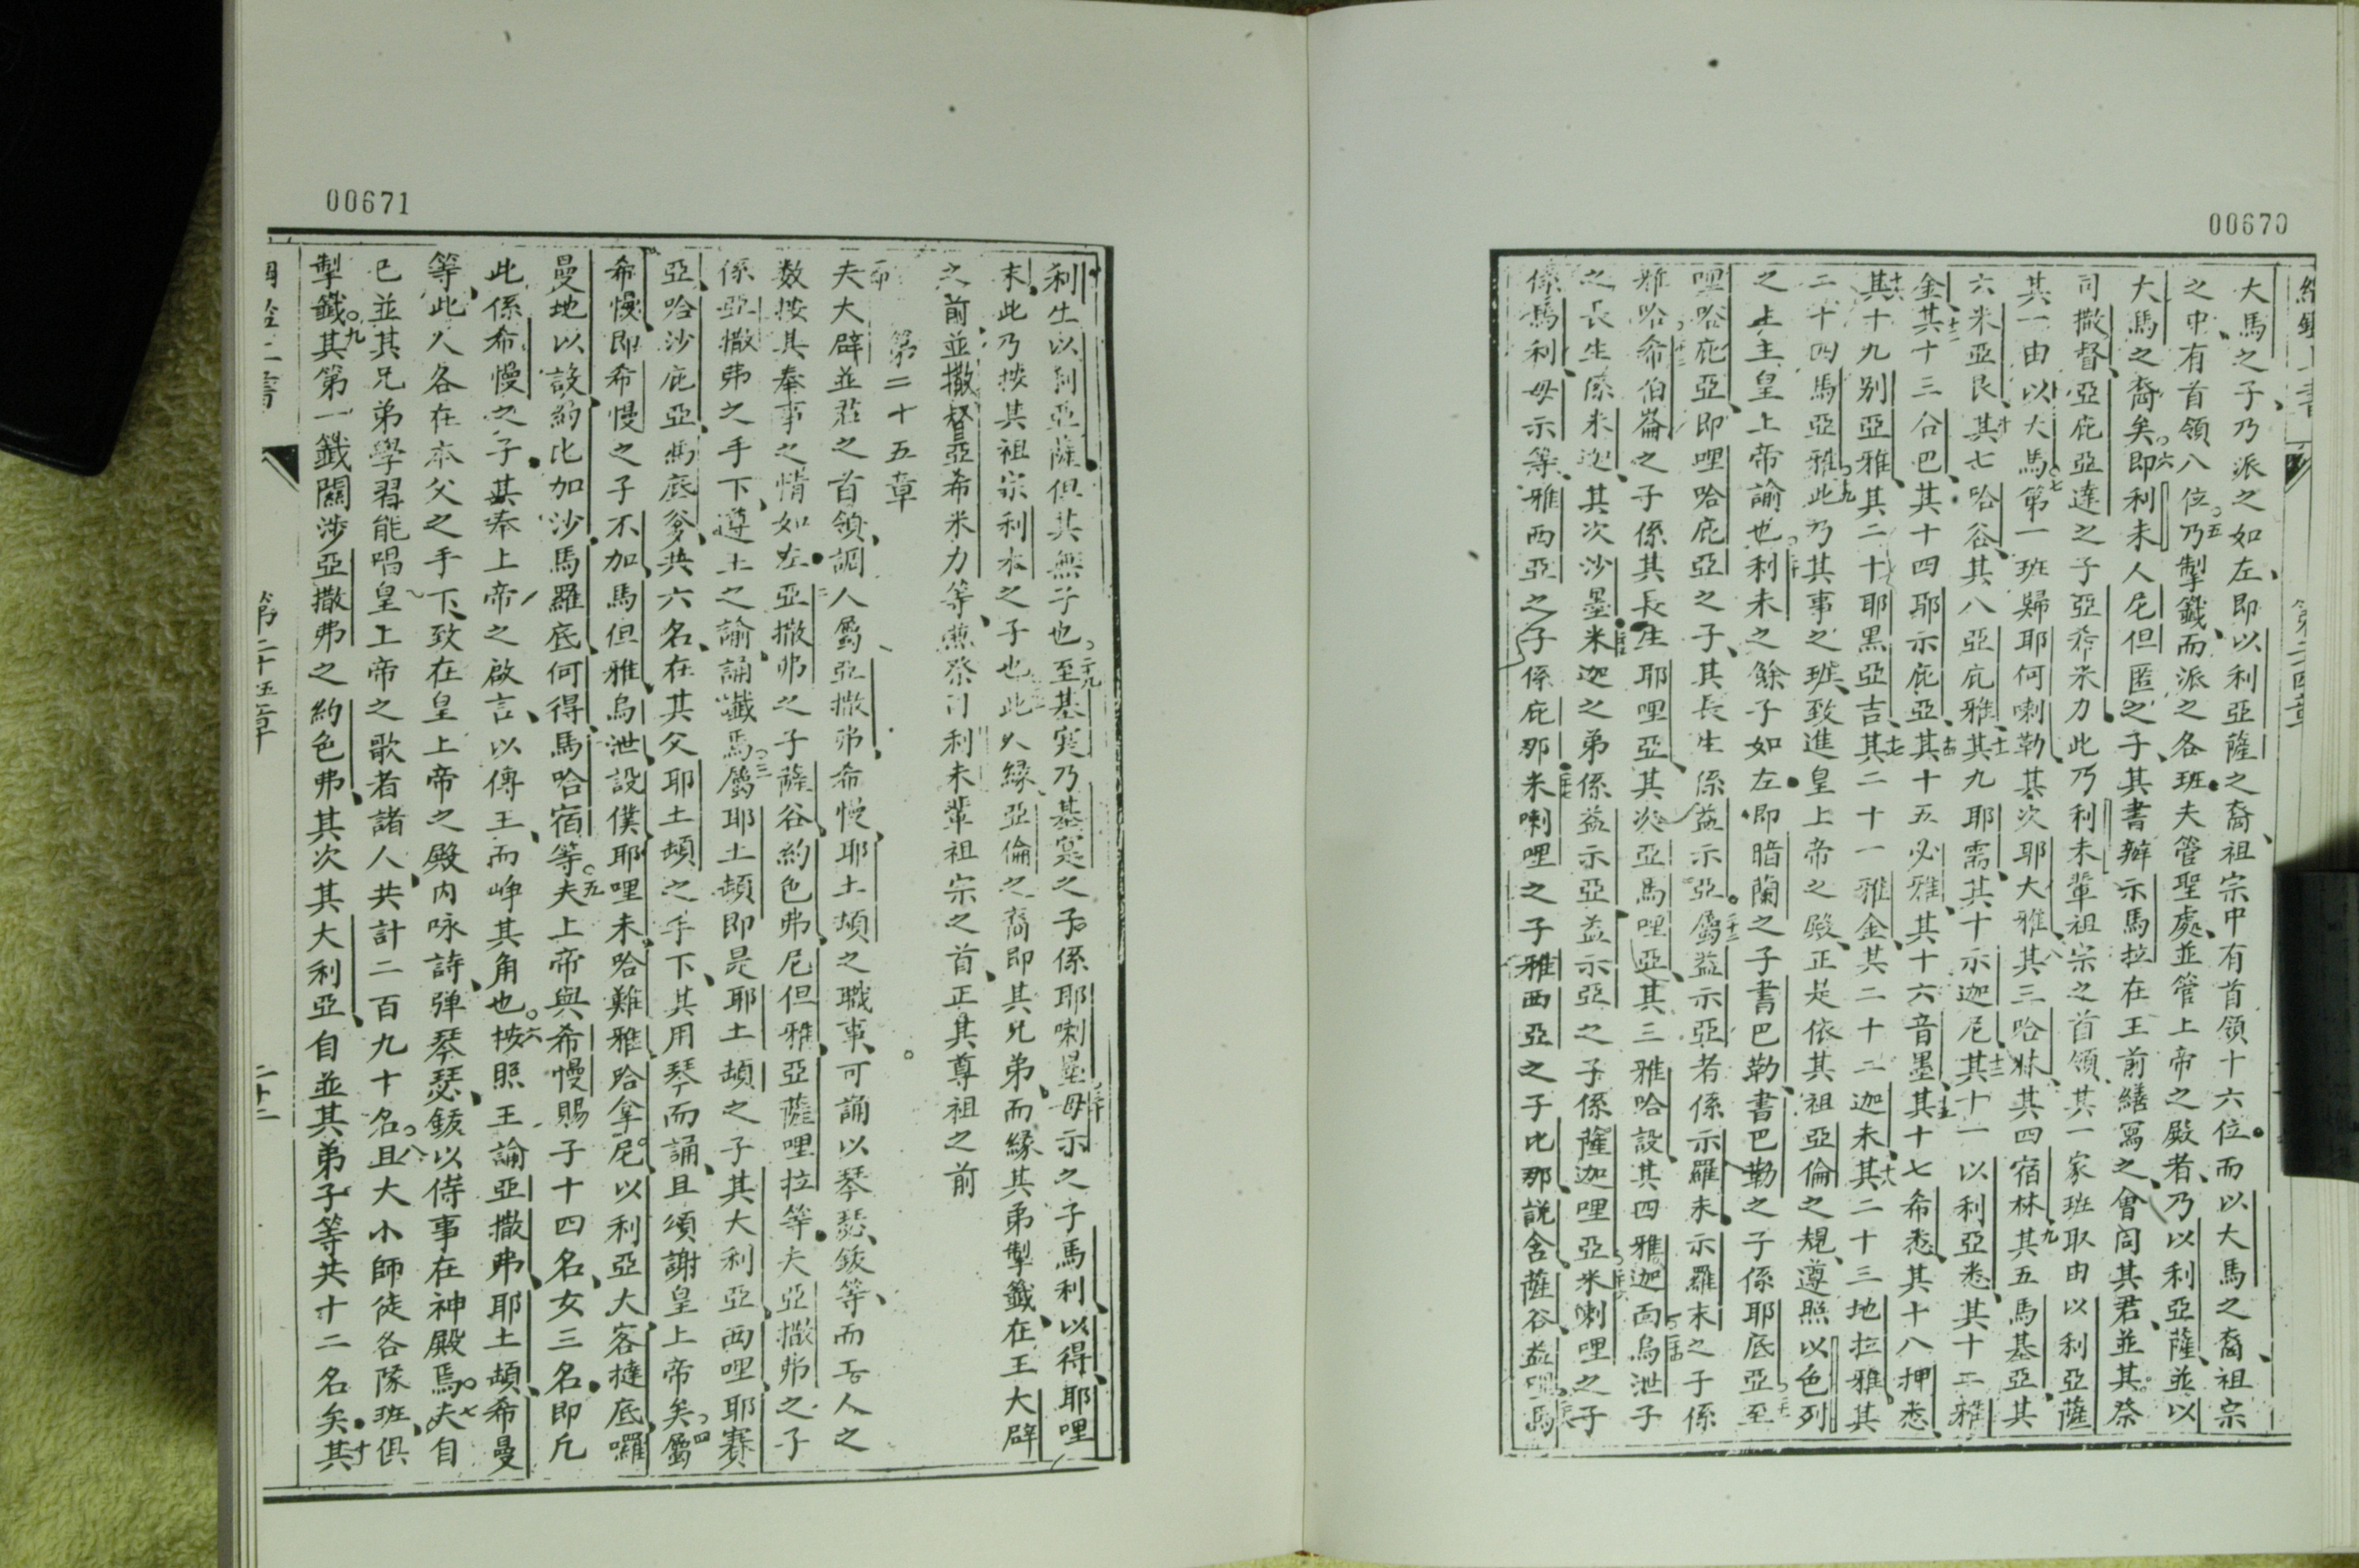 00670
大馬之子乃派之如左即以利亞薩之裔祖宗中有首領十六位而以大馬之裔祖宗
之中有首領八位五乃掣籤而派之各班夫管聖處並管上帝之殿者乃以利亞薩並以
大馬之裔矣六即利未人尼但匿之子其書辦示馬拉在王前繕寫之會同其君並其祭
司撒督亞庇亞達之子亞希米力此乃利未輩祖宗之首領其一家班取由以利亞薩
其一由以大馬七第一班歸耶何喇勒其次耶大雅八其三哈林其四宿林九其五馬基亞其
六米亞民十其七哈谷其八亞庇雅十一其九耶需其十示迦尼十二其十一以利亞悉其十二雅
金十三其十三合巴其十四耶示庇亞十四其十五必雅其十六音墨十五其十七希悉其十八押悉
十六其十九别亞雅其二十耶黑亞吉十七其二十一雅金其二十二迦未十八其二十三地拉雅其
二十四馬亞雅十九此乃其事之班致進皇上帝之殿正是依其祖亞倫之規遵照以色列
之上主皇上帝諭也二十利未之餘子如左即暗蘭之子書巴勒書巴勒之子係耶底亞至
哩哈庇亞即哩哈庇亞之子其長生係益示亞二十二屬益示亞者係示羅末示羅末之子係
雅哈希伯崙之子係其長生耶哩亞其次亞馬哩亞其三雅哈設其四雅迦面烏泄子
之長生係米迦其次沙墨米迦之弟係益示亞益示亞之子係薩迦哩亞米喇哩之子
係馬利母示等雅西亞之子係庇那米喇哩之子雅西亞之子比那説含薩谷益哩馬
00671
利生以利亞薩但其無子也二九至基寔乃基寔之子係耶喇墨母示之子馬利以得耶哩
末此乃按其祖宗利未之子也此人緣亞倫之裔即其兄弟而緣其弟掣籤在王大辟
之前並撒督亞希米力等焦祭司利未輩祖宗之首正其尊祖之前
第二十五章
夫大辟並莊之首領調人屬亞撒弗希慢耶土頓之職事可誦以琴瑟鈸等而工人之
数按其奉事之情如左二亞撒弗之子薩谷約色弗尼但雅亞薩哩拉等夫亞撒弗之子
係亞撒弗之手下遵王之諭誦讖焉三屬耶土頓即是耶土頓之子其大利亞西哩耶賽
亞哈沙庇亞馬底爹共六名在其父耶土頓之手下其用琴而誦且頌謝皇上帝矣四屬
希慢即希慢之子不加馬但雅烏泄設僕耶哩未哈難雅哈拿尼以利亞大客撻底囉
曼地以設約比加沙馬羅底何得馬哈宿等五夫上帝與希慢賜子十四名女三名即凡
此係希慢之子其奉上帝之啟言以傳王而崢其角也六按照王諭亞撒弗耶土頓希曼
等此人各在本父之手下致在皇上帝之殿内咏詩弹琴瑟鈸以侍事在神殿焉七夫自
已並其兄弟學習能唱皇上帝之歌者諸人共計二百九十名八且大小師徒各隊班俱
掣籤九其第一籤關涉亞撒弗之約色弗其次其大利亞自並其弟子等共十二名矣十其
第二十五章
二十二